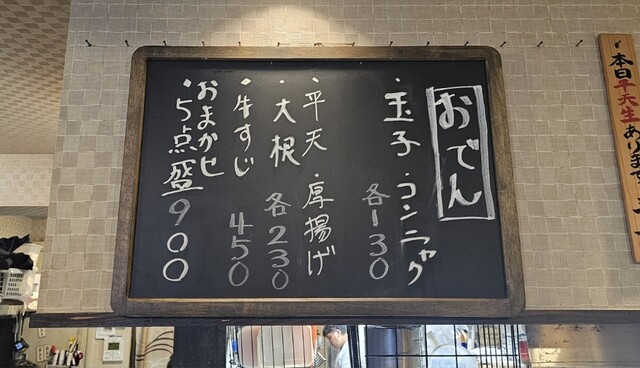 おでん
・玉子 ・コンニャク
各130
・平天 ・厚揚げ
・大根 各230
・牛すじ 450
おまかせ
・5点盛 900
本日平天生あります